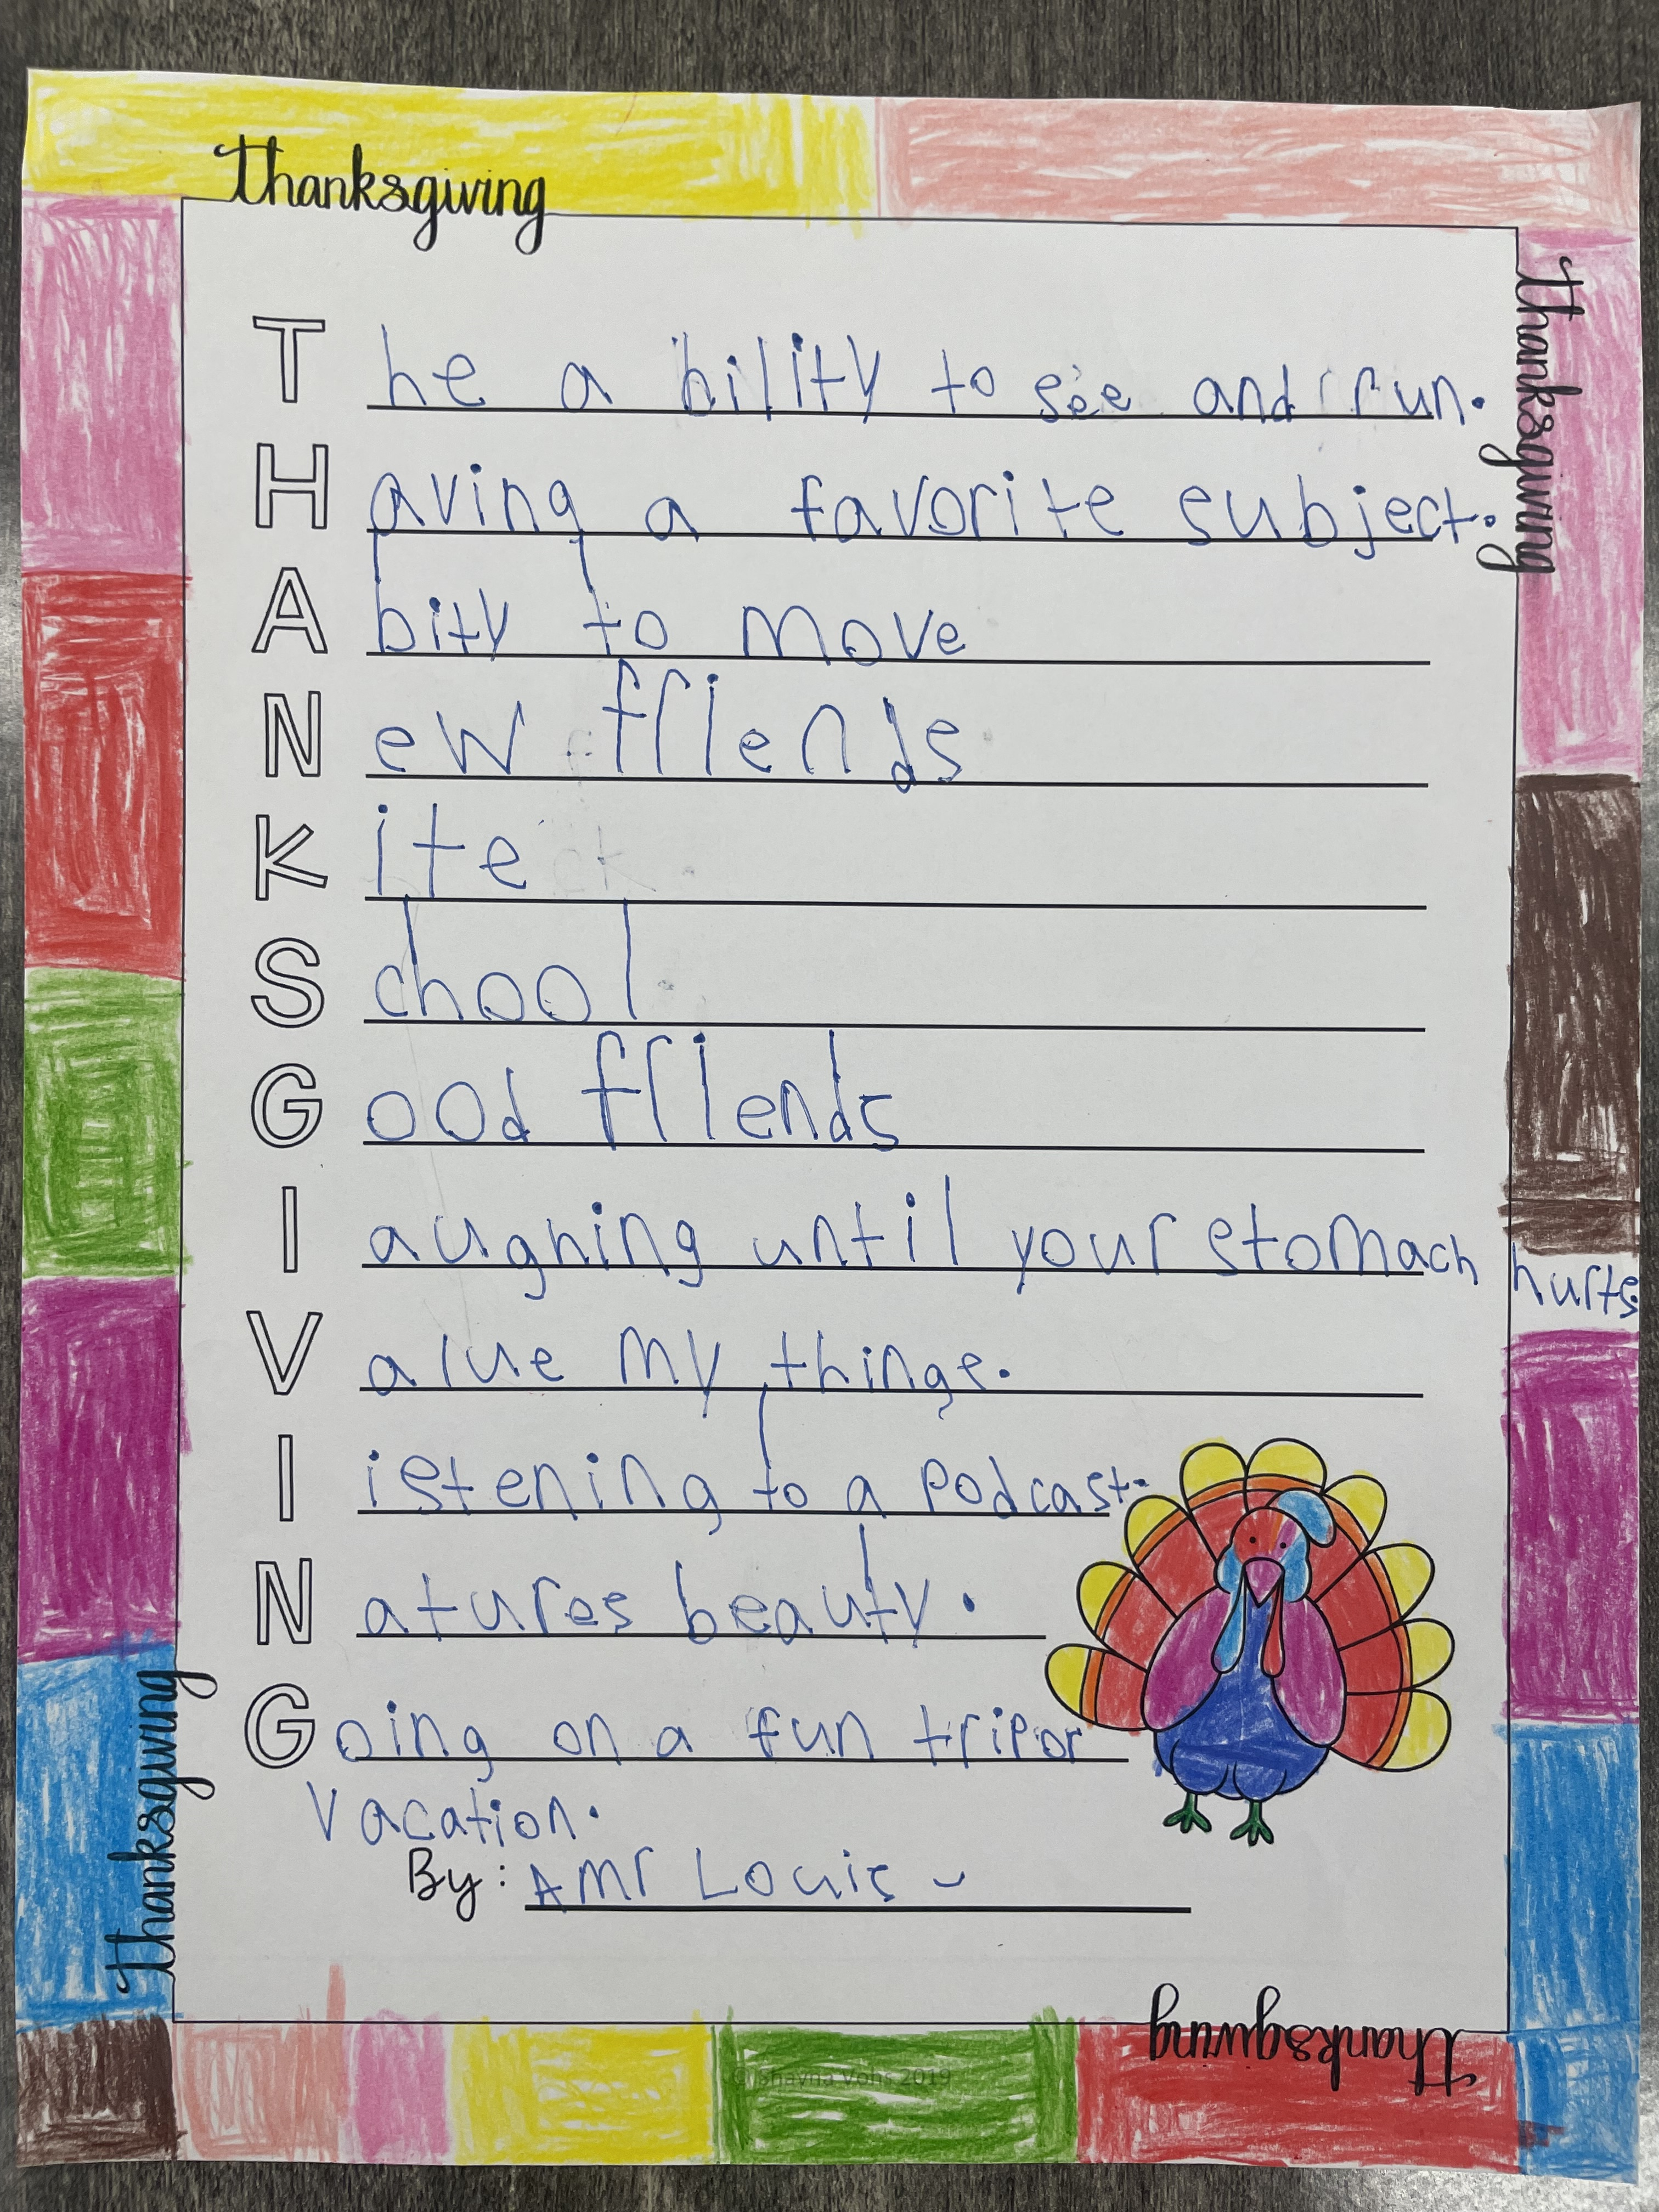 Thanksgiving
Thanksgiving
T he a bility to see and run.
H aving a favorite subject.
A bity to move
N ew friends
K ite
S chool
G ood friends
I aughing until your stomach hurts.
V alue my things.
I istening to a podcast.
N atures beauty.
G oing on a fun trip or
vacation.
By: Amr Louis
Thanksgiving
Thanksgiving
© Shayna Vohs 2019